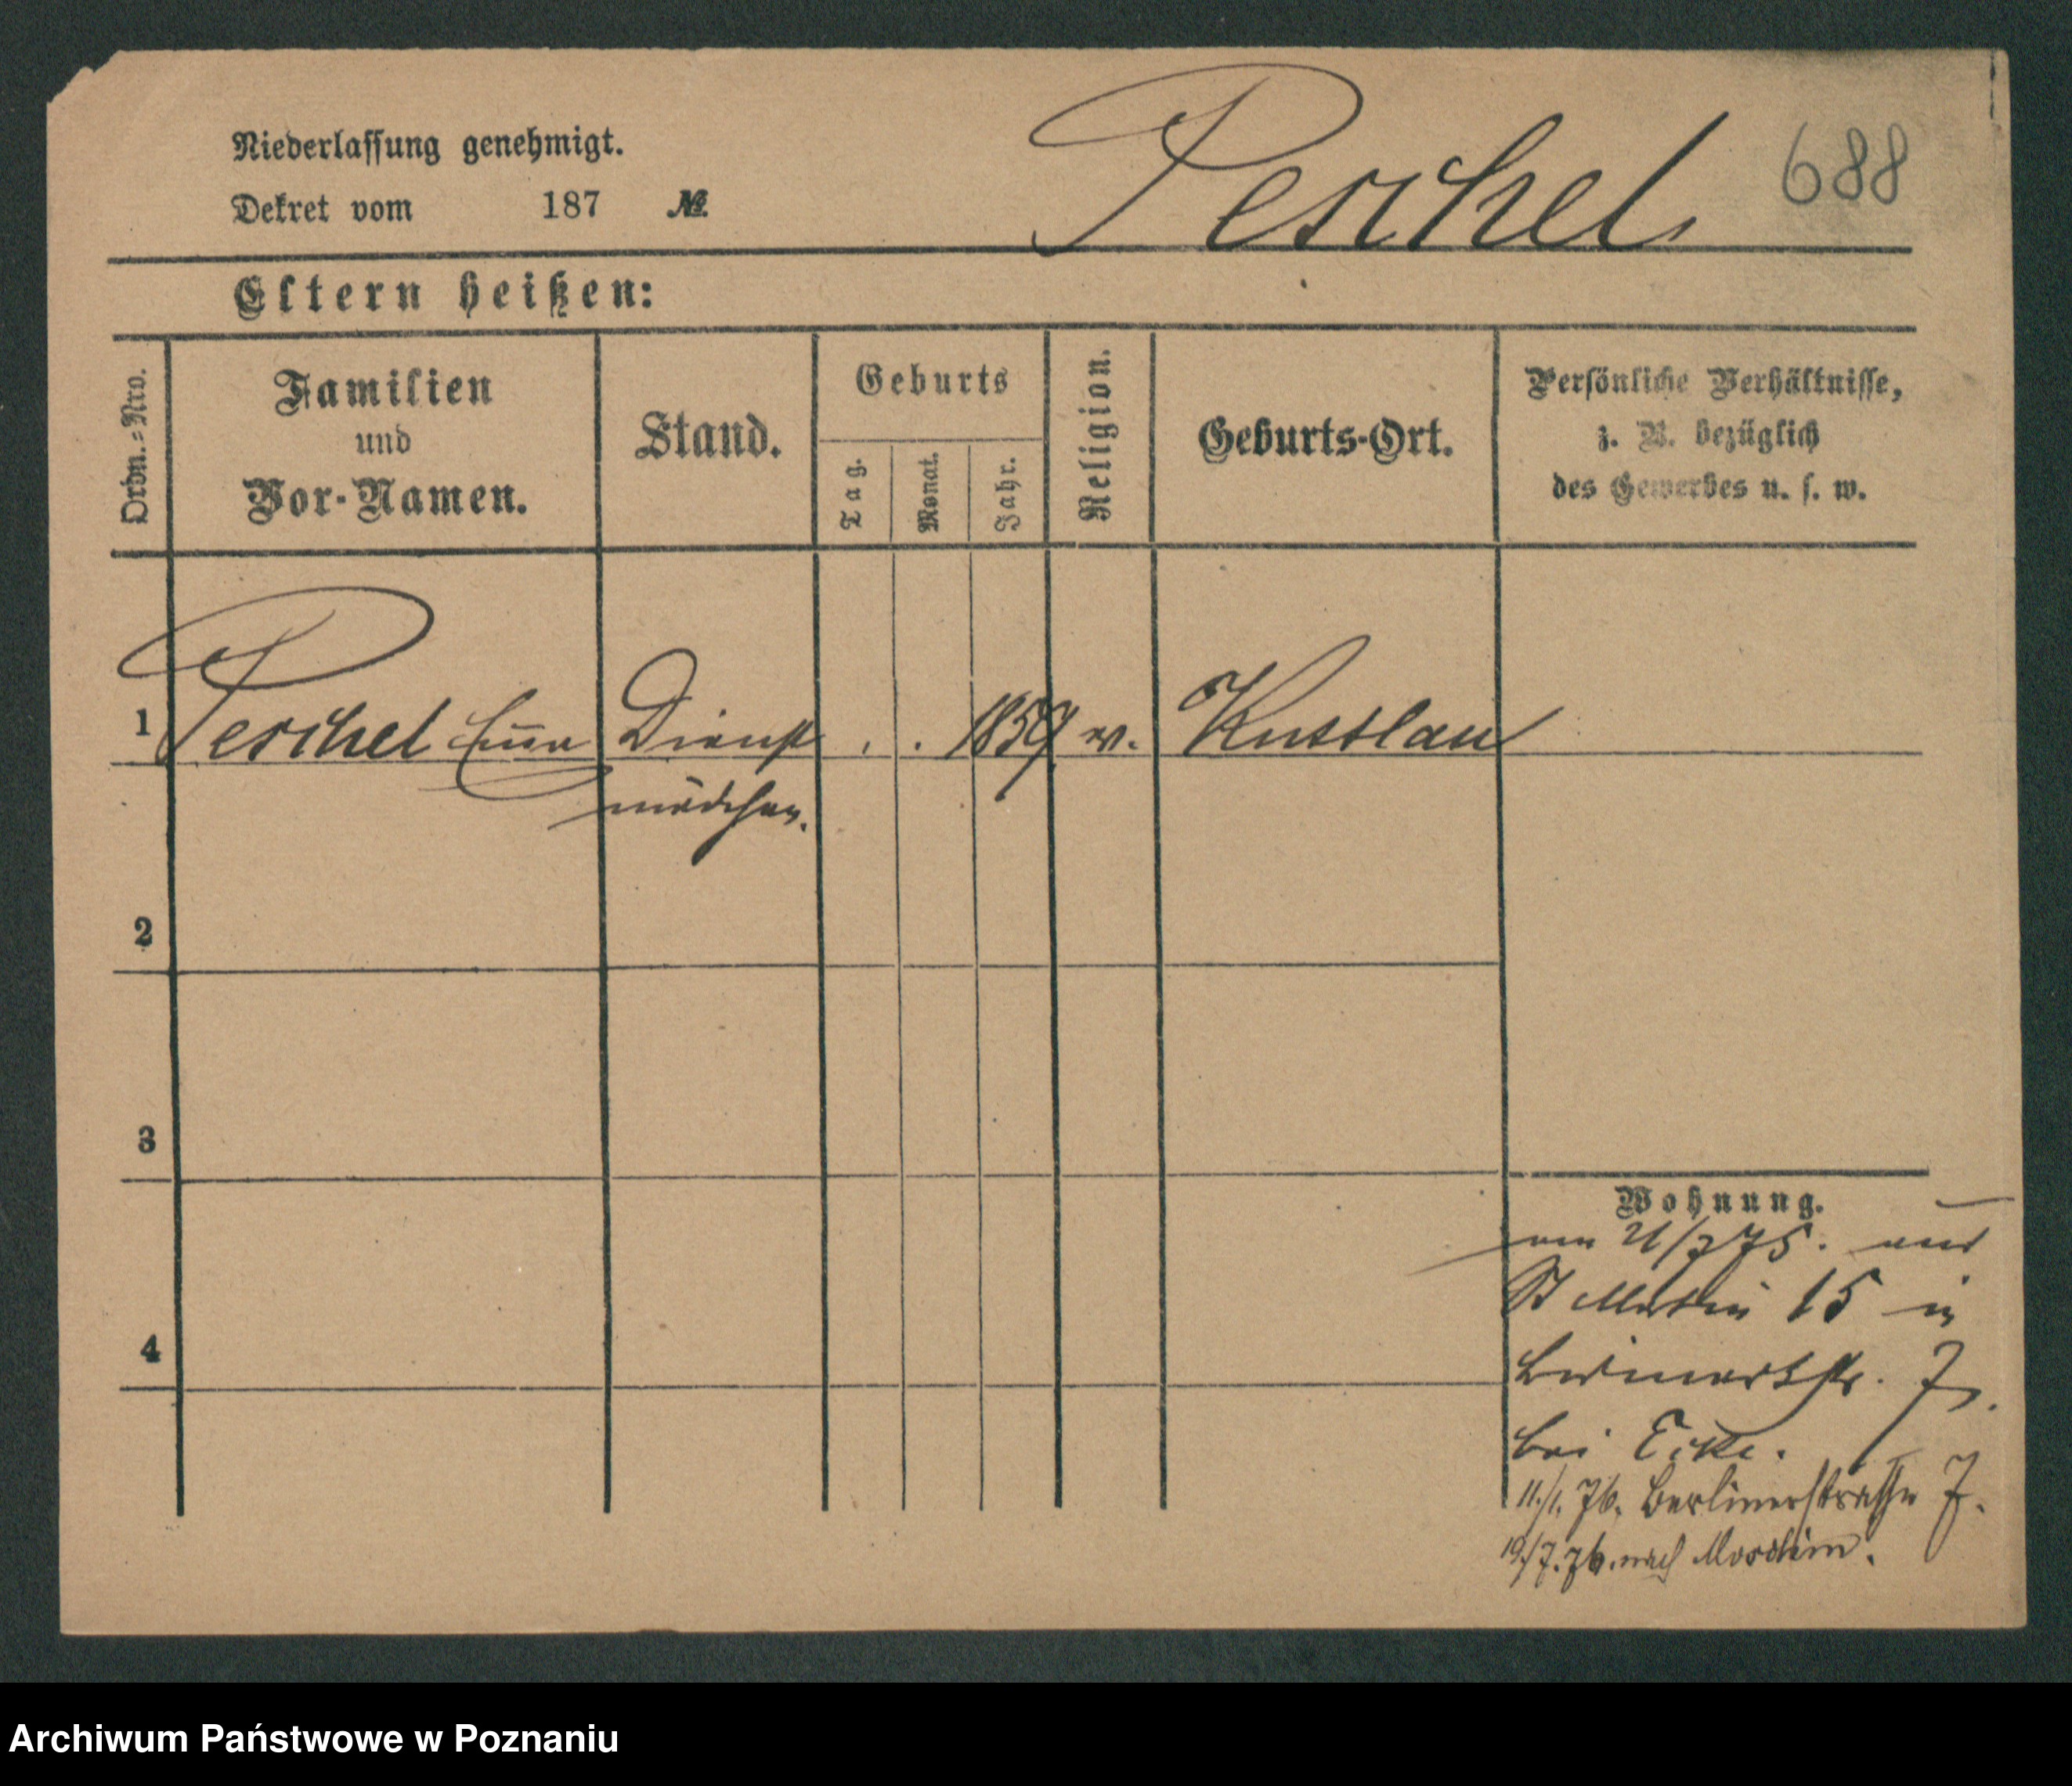 Niederlassung genehmigt.
Dekret vom 187 No.
Peschel
688
Eltern heißen:
Ordn.-Nro.
Familien
und
Vor-Namen.
Stand.
Geburts
Tag.
Monat.
Jahr.
Religion.
Geburts-Ort.
Persönliche Verhältnisse,
z. B. bezüglich
des Gewerbes u. s. w.
1 Peschel Dienst . . 1859
mädchen.
2
3
4
Wohnung.
St Martin 15 in
7
bei
11./1. 76. Berlinerstraße 7.
19/7. 76. nach
Archiwum Państwowe w Poznaniu